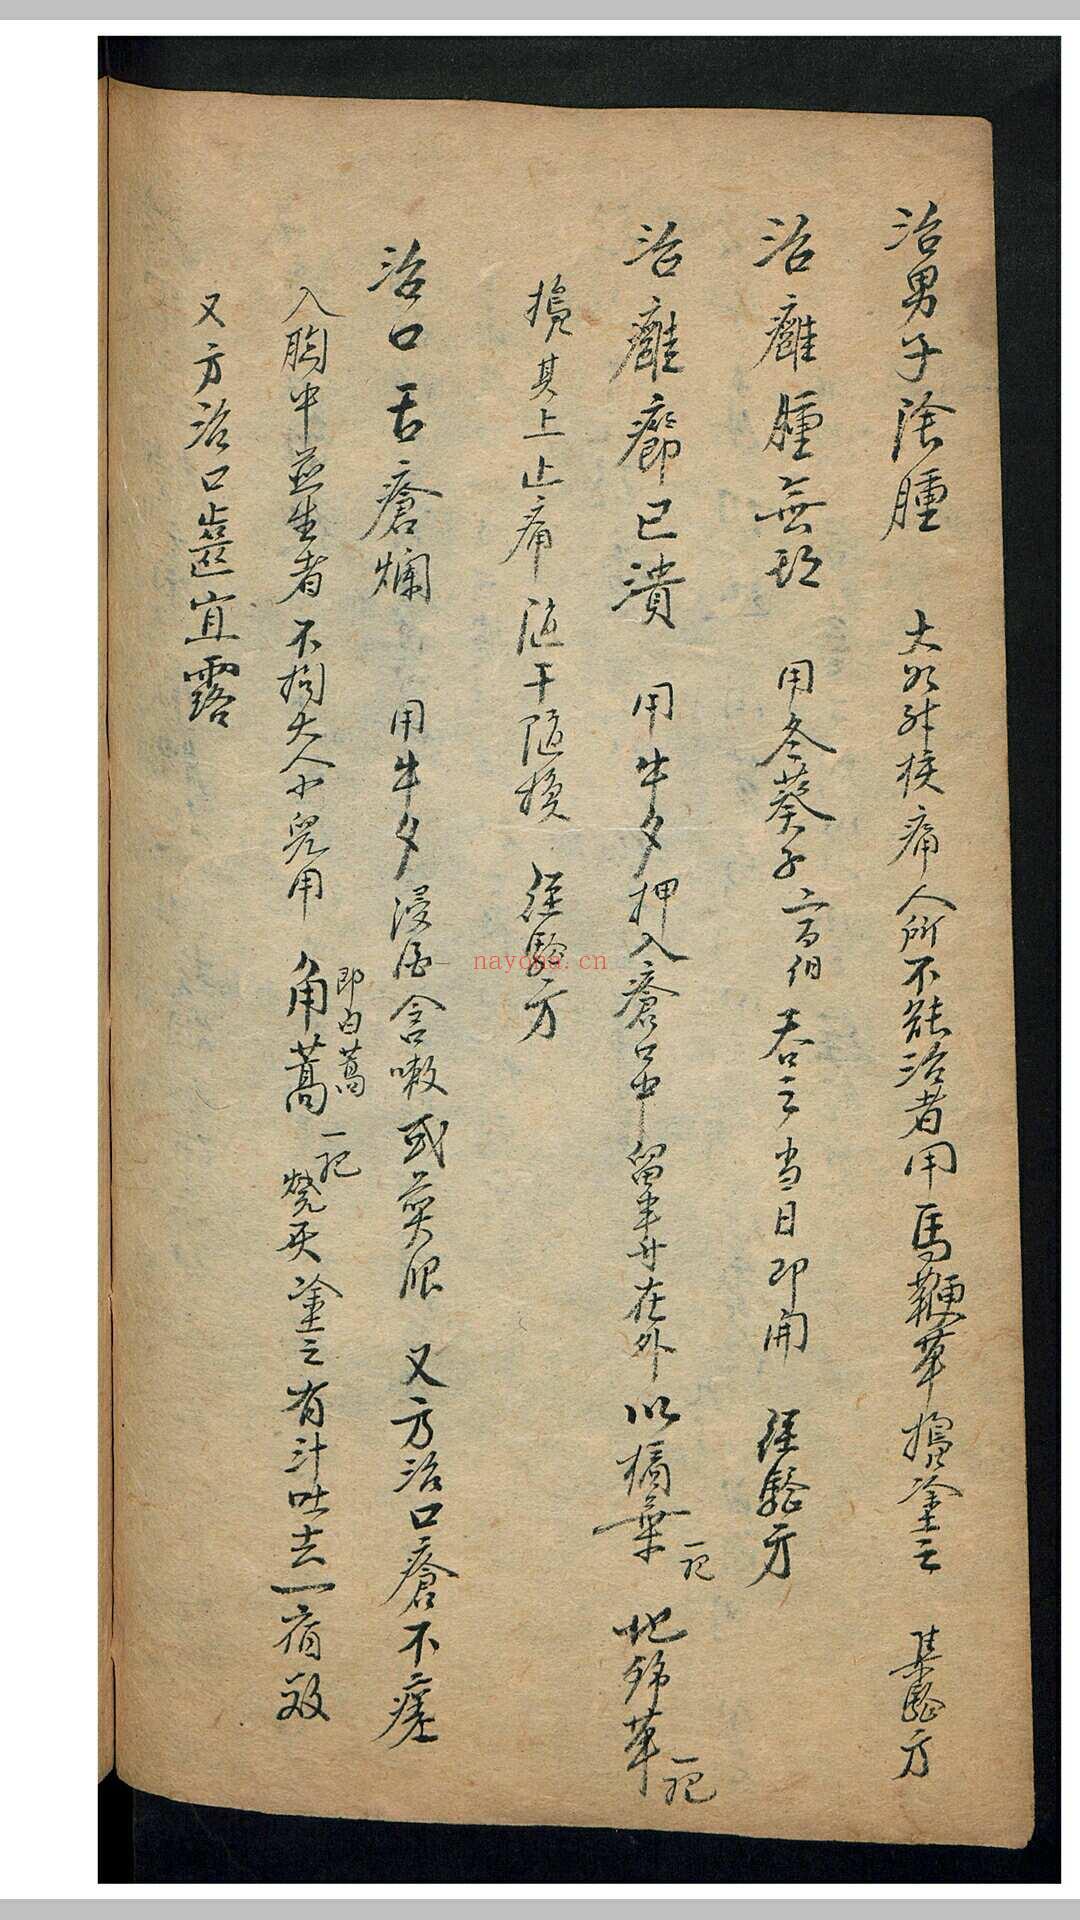 治男子陰腫 大如升核痛人所不能治者用馬鞭草搗塗之 集驗方
治癰腫無頭 用冬葵子二百個 吞之当日即開 經驗方
治癰癤已潰 用牛夕押入瘡口中留半寸在外以橘葉一把 地錦草一把
搗其上止痛 隨干隨换 經驗方
治口舌瘡爛 用牛夕浸酒含嗽或煎服 又方治口瘡不瘥
入胸中並生者不拘大人小兒用 角蒿 即白蒿 一把 燒灰塗之有汁吐去一宿效
又方治口齒宣露
nayona.cn